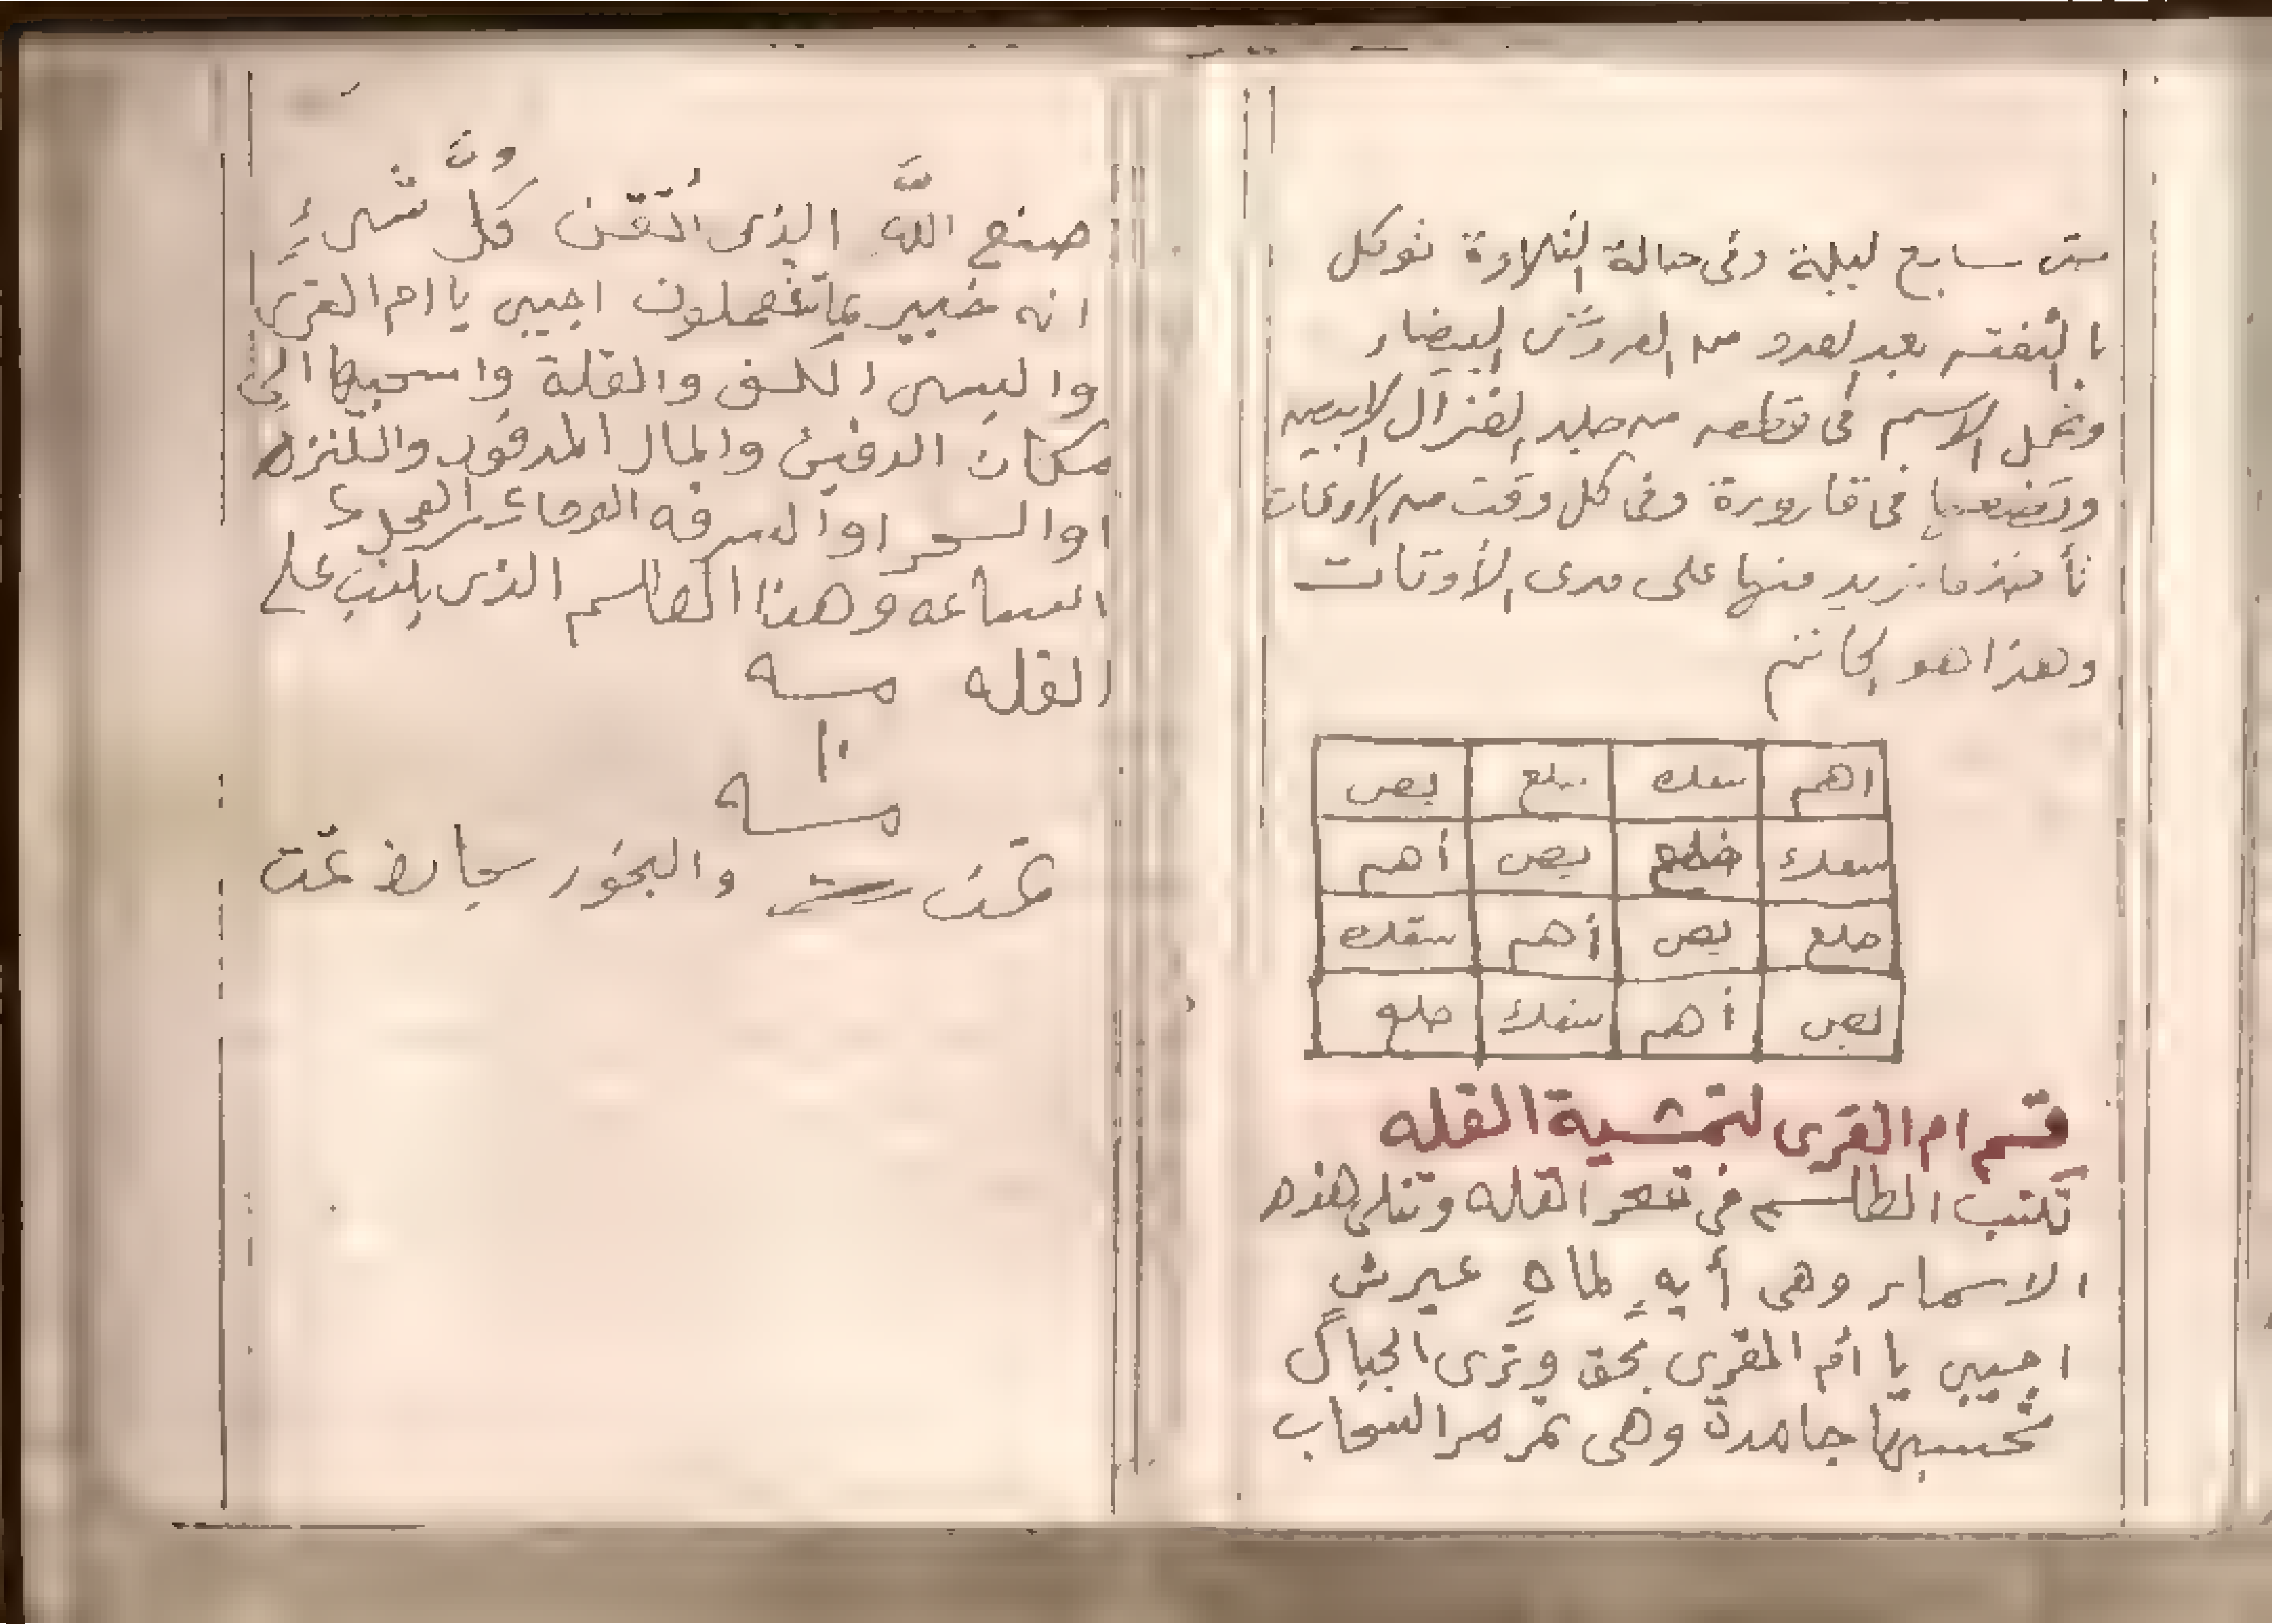 حتى سابع ليلة وفى حالة التلاوة توكل
وتحمل الاسم فى قطعه من جلد الغزال الابيض
وتضعها فى قارورة وفى كل وقت من الاوقات
تأخذ ما تريد منها على مدى الأوقات
وهذا هو الخاتم
اهم سعك يص
سعك يص أهم
حلع يص أهم سقك
يص أهم سعك حلع
قسم ام القرى لتمشية القله
تكتب الطلسم فى قعر القله وتتلى هذه
الاسماء وهى أيهٍ لماهٍ عيرش
اجيبى يا أم القرى بحق وترى الجبال
تحسبها جامدة وهى تمر مر السحاب
صنع اللَّه الذى أتقن كلَّ شىءٍ
انه خبير بما تفعلون اجيبى يا ام القرى
والبسى الكف والقلة واسحبيها الى
مكان الدفين والمال المدفون والكنز
او السحر او السرقه الوحا العجل
الساعه وهذا الطلسم الذى يكتب على
القله مسه
١٠
مسه
تمت والبخور تمت